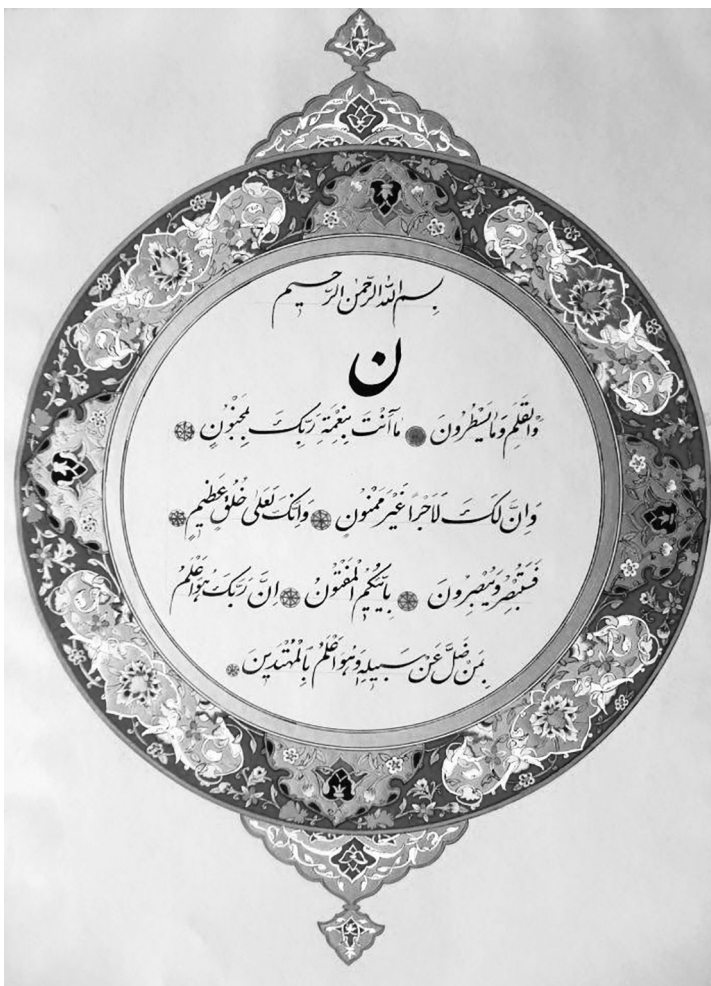 بسم الله الرحمن الرحیم
ن
وَالْقَلَمِ وَمَا یَسْطُرُونَ مَا آنْتَ بِنِعْمَةِ رَبِّکَ بِمَجْنُونٍ
وَاِنَّ لَکَ لَاَجْرًا غَیْرَ مَمْنُونٍ وَاِنَّکَ لَعَلیٰ خُلُقٍ عَظِیمٍ
فَسَتُبْصِرُ وَیُبْصِرُونَ بِاَیِّکُمُ الْمَفْتُونُ اِنَّ رَبَّکَ هُوَ اَعْلَمُ
بِمَنْ ضَلَّ عَنْ سَبِیلِهِ وَهُوَ اَعْلَمُ بِالْمُهْتَدِینَ